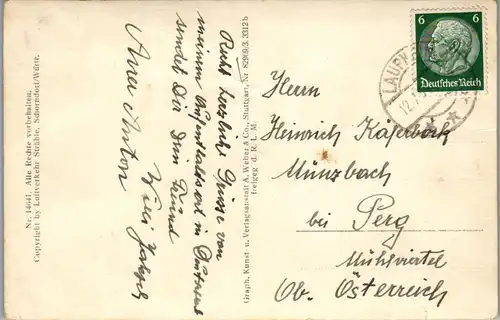 Nr. 14641. Alle Rechte vorbehalten.
Copyright by Luftverkehr Strähle, Schorndorf/Württ.
Recht herzliche Grüsse von
meinem Aufenthaltsort in
sendet Dir Dein Freund
Anton
Graph. Kunst- u. Verlagsanstalt A. Weber & Co., Stuttgart, Nr. 82909/3. 3312 b
freigeg. d. R. L. M.
6 6
Deutsches Reich
LAUF
12.7.
Herrn
Heinrich Käferböck
Münzbach
bei Perg
Mühlviertel
Ob. Österreich